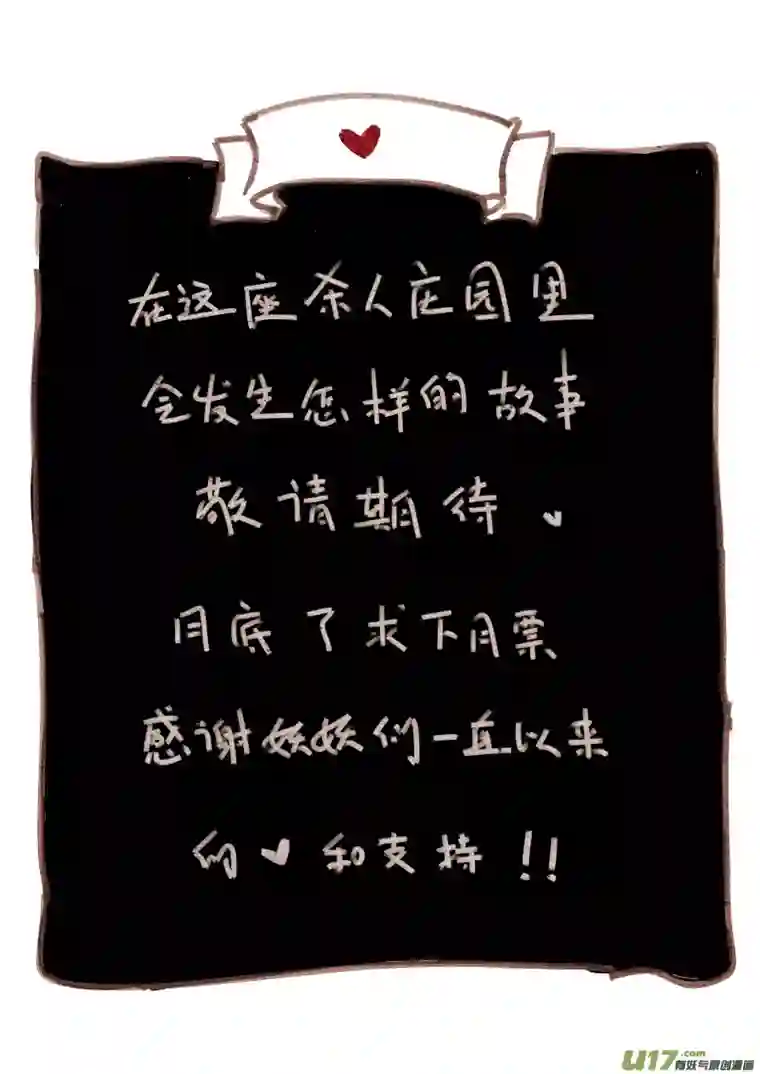 在这座杀人庄园里
会发生怎样的故事
敬请期待
月底了求下月票
感谢妖妖们一直以来
的❤和支持!!
U17.com
有妖气原创漫画